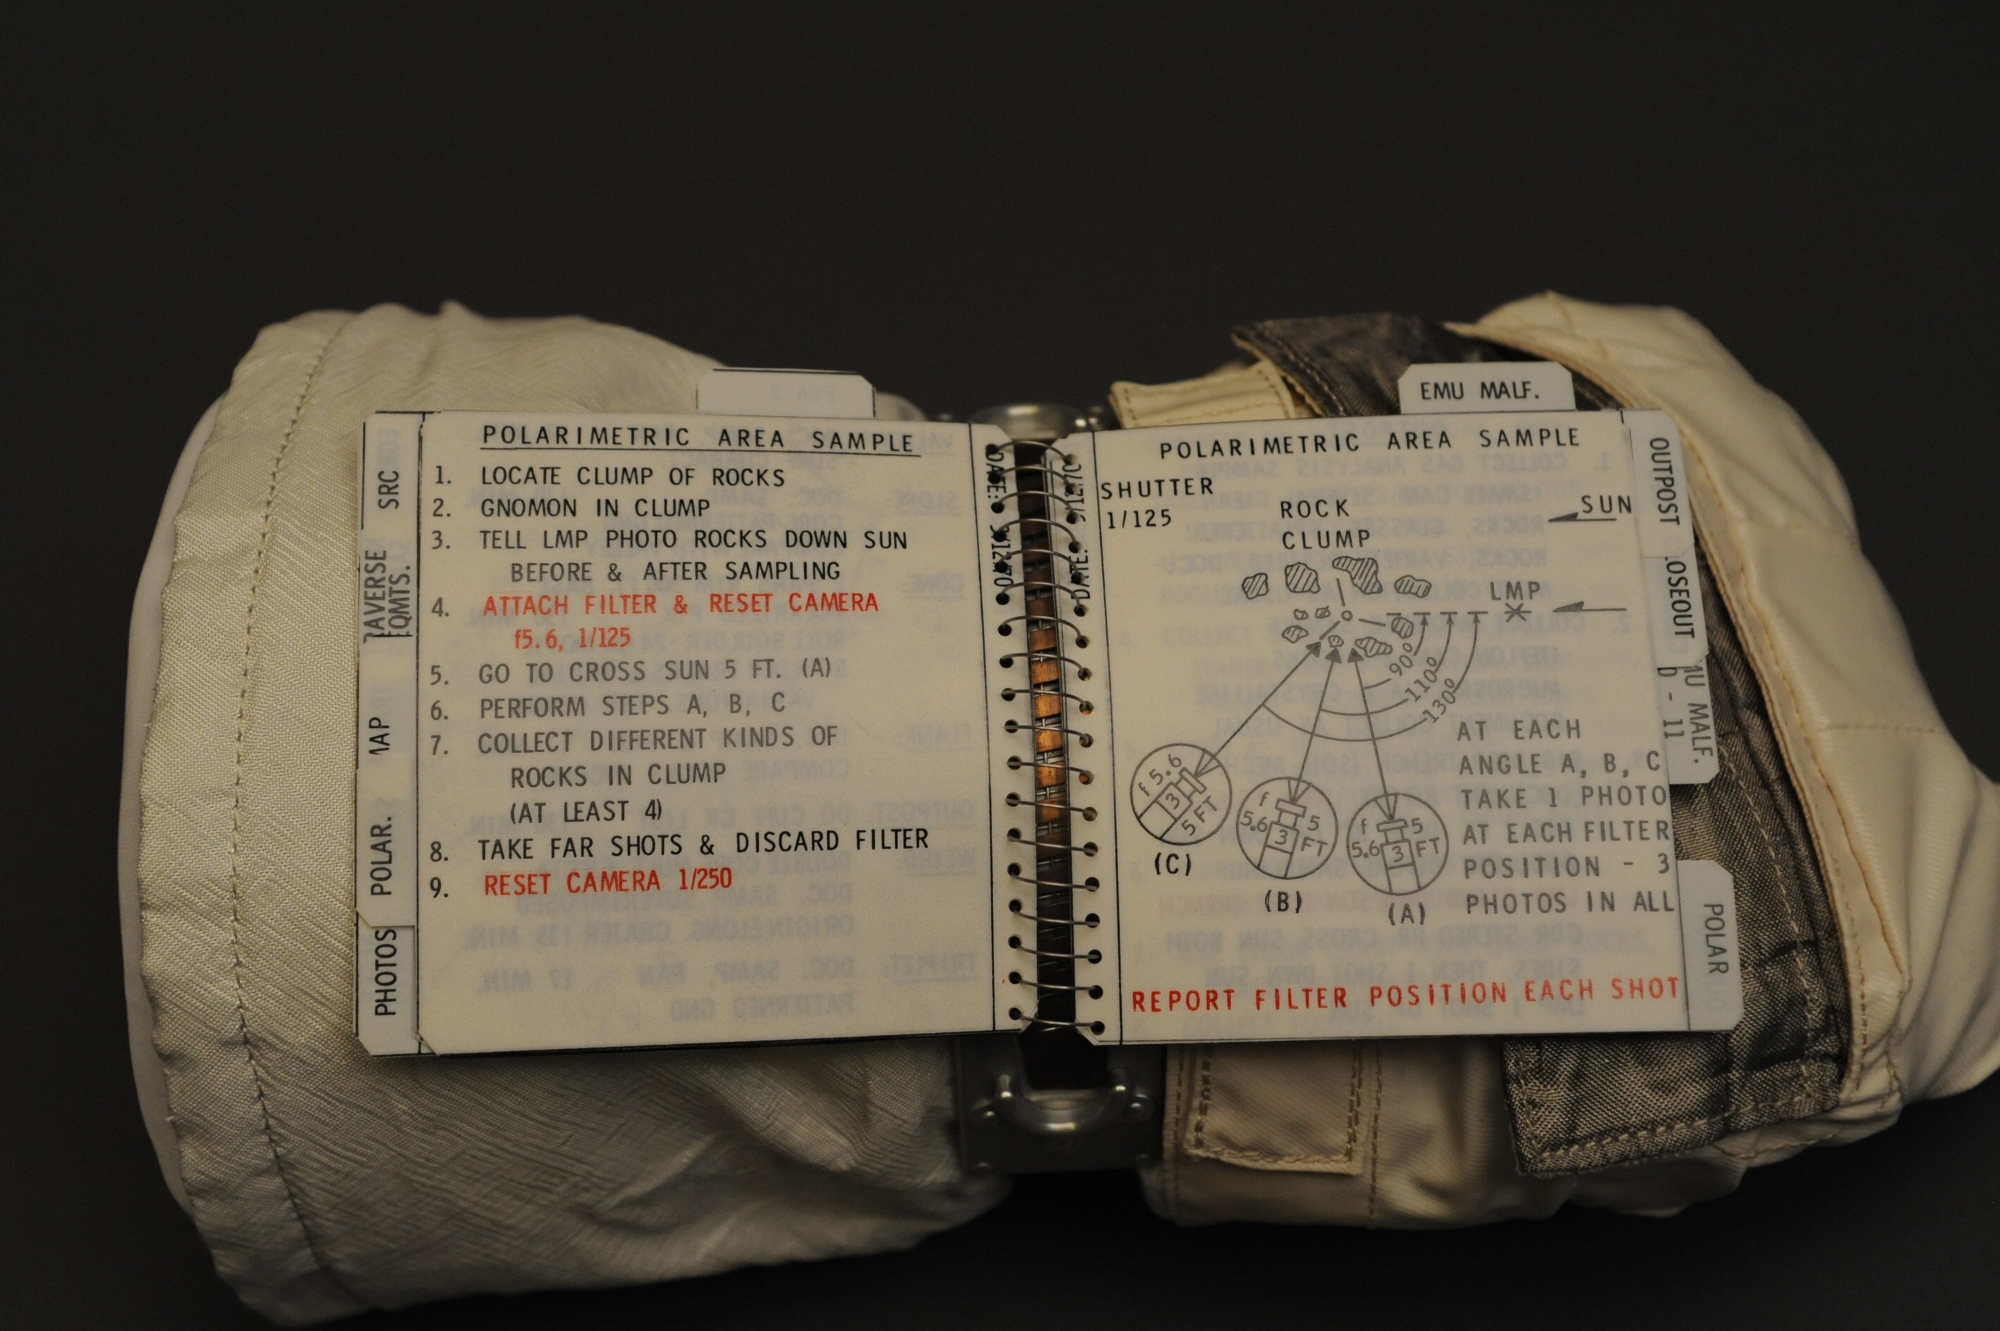 EMU MALF.
SRC
TRAVERSE
EQMTS.
MAP
POLAR.
PHOTOS
POLARIMETRIC AREA SAMPLE
1. LOCATE CLUMP OF ROCKS
2. GNOMON IN CLUMP
3. TELL LMP PHOTO ROCKS DOWN SUN
BEFORE & AFTER SAMPLING
4. ATTACH FILTER & RESET CAMERA
f5.6, 1/125
5. GO TO CROSS SUN 5 FT. (A)
6. PERFORM STEPS A, B, C
7. COLLECT DIFFERENT KINDS OF
ROCKS IN CLUMP
(AT LEAST 4)
8. TAKE FAR SHOTS & DISCARD FILTER
9. RESET CAMERA 1/250
DATE:
DATE: 9/12/70
POLARIMETRIC AREA SAMPLE
SHUTTER
1/125
ROCK
CLUMP
SUN
LMP
90º
110º
130º
f5.6
3
5 FT
(C)
f
5.6
3
5
FT
(B)
f
5.6
3
5
FT
(A)
AT EACH
ANGLE A, B, C
TAKE 1 PHOTO
AT EACH FILTER
POSITION - 3
PHOTOS IN ALL
REPORT FILTER POSITION EACH SHOT
OUTPOST
OSEOUT
MALF.
D - 11
POLAR